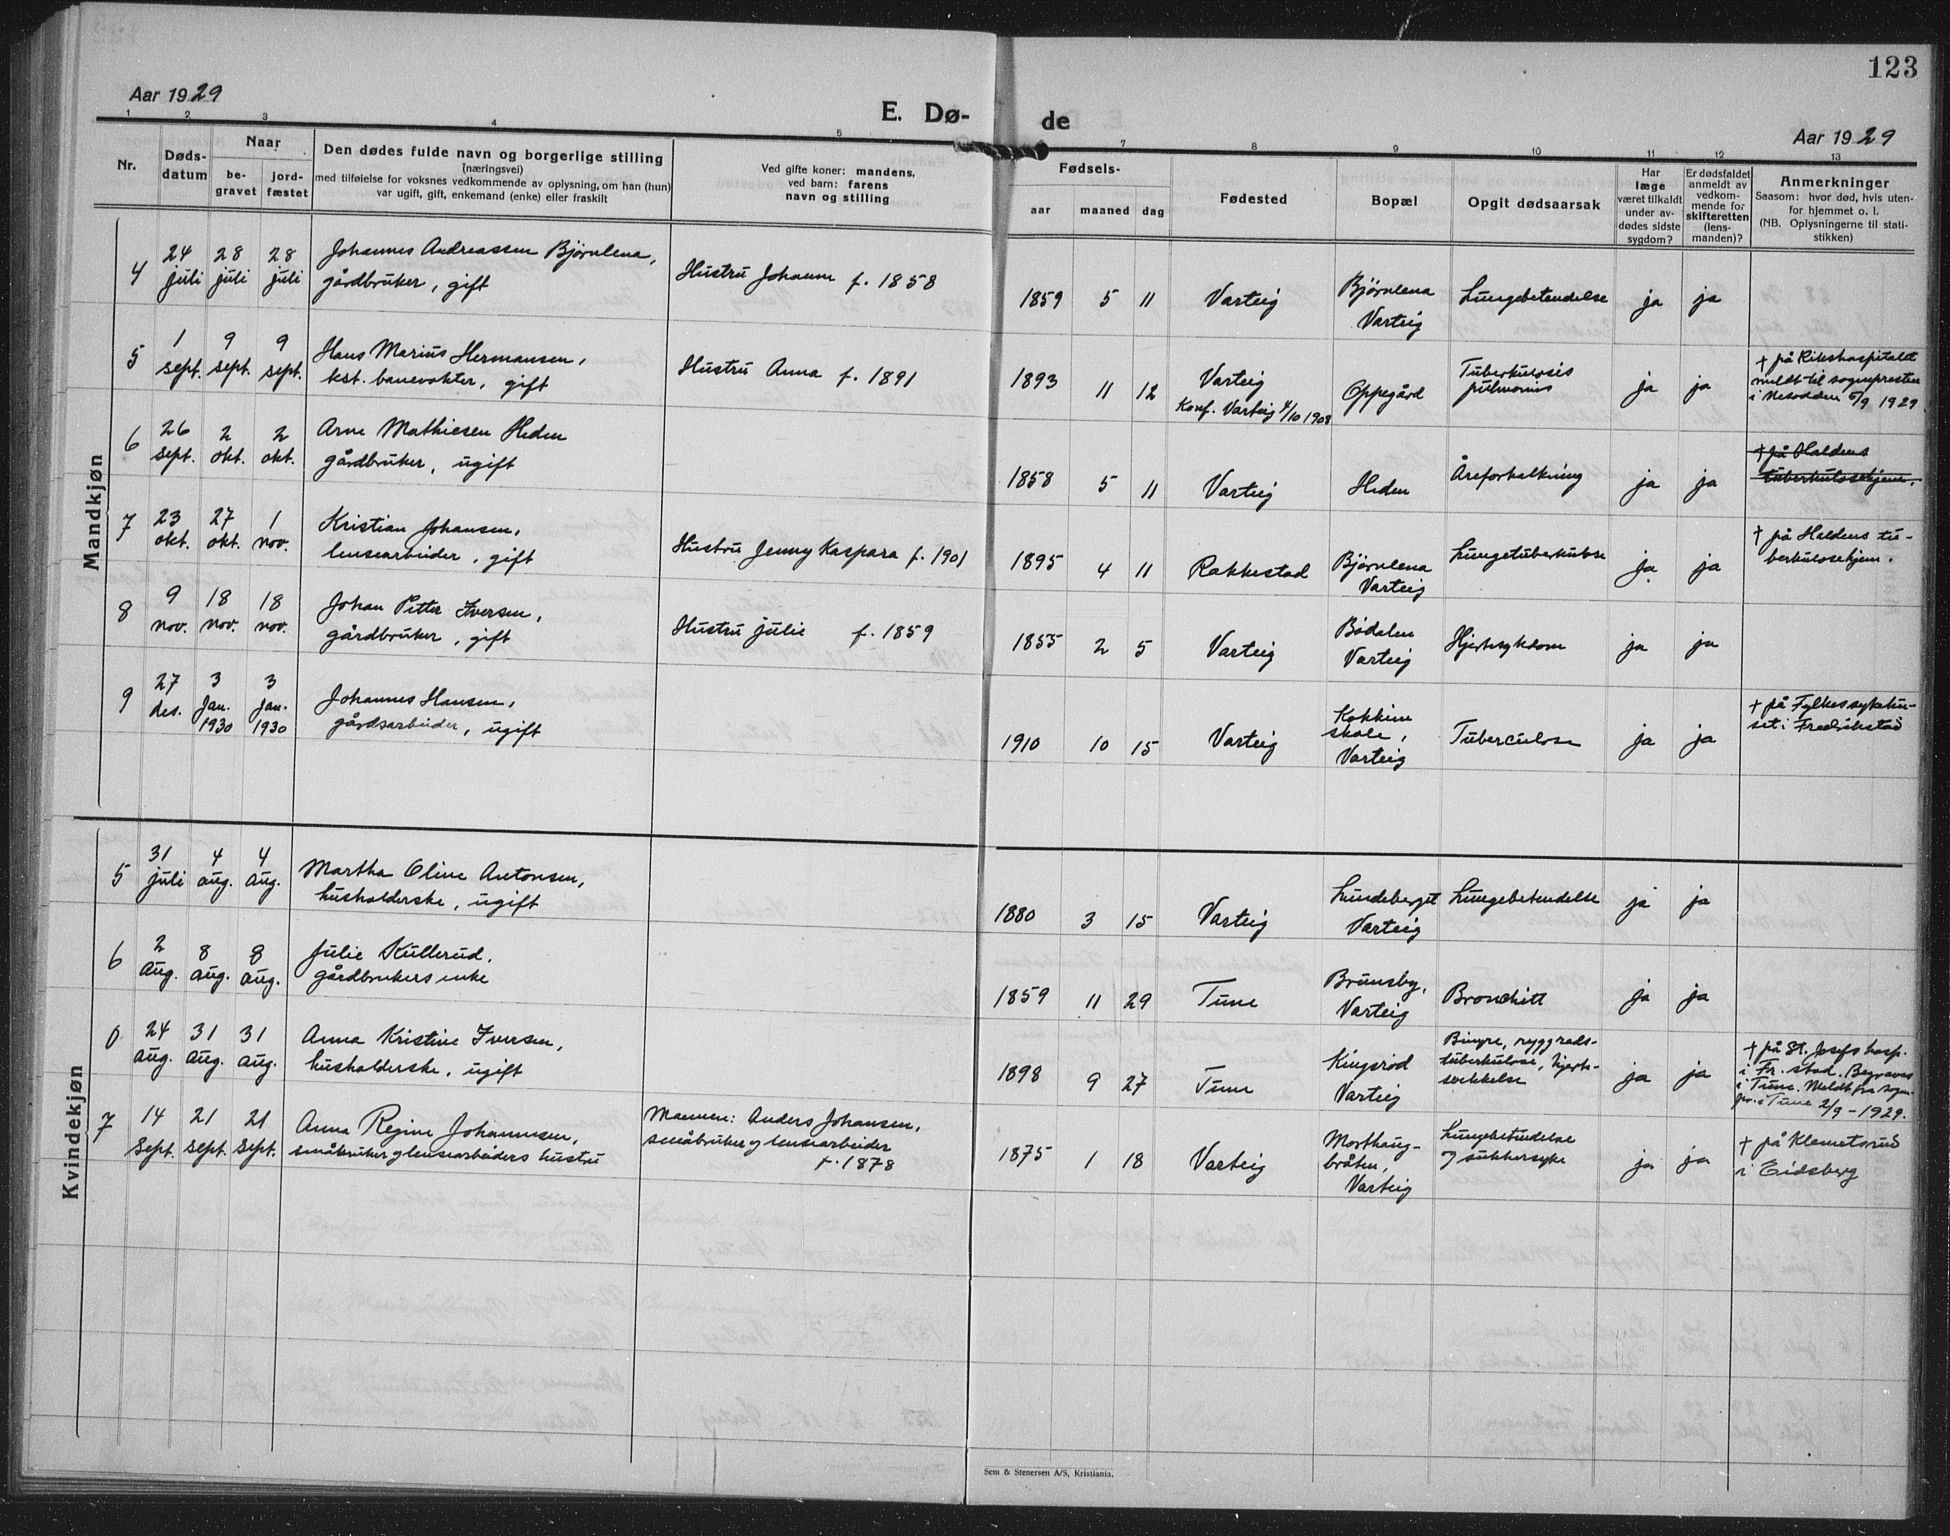 123
Aar 1929
E. Dø-
de
Aar 1929
1 2 3 4 5 7 8 9 10 11 12 13
Nr.
Døds-
datum
Naar
be-
gravet
jord-
fæstet
Den dødes fulde navn og borgerlige stilling
(næringsvei)
med tilføielse for voksnes vedkommende av oplysning, om han (hun)
var ugift, gift, enkemand (enke) eller fraskilt
Ved gifte koner: mandens,
ved barn: farens
navn og stilling
Fødsels-
aar maaned dag
Fødested
Bopæl
Opgit dødsaarsak
Har
læge
været tilkaldt
under av-
dødes sidste
sygdom?
Er dødsfaldet
anmeldt av
vedkom-
mende for
skifteretten
(lens-
manden)?
Anmerkninger
Saasom: hvor død, hvis uten-
for hjemmet o. l.
(NB. Oplysningerne til stati-
stikken)
Mandkjøn
4
24
juli
28
juli
28
juli
Johannes Andreassen Bjørnlena,
gårdbruker, gift
Hustru Johanne f. 1858
1859 5 11 Varteig
Bjørnlena
Varteig
Lungebetendelse
ja ja
5
1
sept.
9
sept.
9
sept.
Hans Marius Hermansen,
kst. banevokter, gift
Hustru Anna f. 1891
1893 11 12
Varteig
Konf. Varteig 4/10 1908
Oppegård
Tuberkulosis
pulmonis
ja ja
+ på Rikshospitalet
meldt til sognepresten
i Nesodden 5/9 1929.
6
26
sept.
2
okt.
2
okt.
Arne Mathiesen Heden
gårdbruker, ugift
1858 5 11 Varteig
Heden
Åreforkalkning
ja ja
+ på Haldens
tuberkulosehjem.
7
23
okt.
27
okt.
1
nov.
Kristian Johansen,
lensearbeider, gift
Hustru Jenny Kaspara f. 1901
1895 4 11 Rakkestad
Bjørnlena
Varteig
Lungetuberkulose
ja ja
+ på Heldens tu-
berkulosehjem.
8
9
nov.
18
nov.
18
nov.
Johan Petter Iversen,
gårdbruker, gift
Hustru Julie f. 1859
1855 2 5 Varteig
Bødalen
Varteig
Hjertesykdom
ja ja
9
27
des.
3
Jan.
1930
3
Jan.
1930
Johannes Hansen,
gårdsarbeider, ugift
1910 10 15 Varteig
skole,
Varteig
Tuberculose
ja ja
+ på Fylkessykehu-
set i Fredrikstad
Kvindekjøn
5
31
juli
4
aug.
4
aug.
Martha Oline Antonsen,
husholderske, ugift
1880 3 15 Varteig
Lundeberget
Varteig
Lungebetendelse
ja ja
6
2
Aug.
8
aug.
8
aug.
Julie Kullerud,
gårdbrukers enke
1859 11 29 Tune
Brunsby,
Varteig
Bronchitt
ja ja
0
24
aug.
31
aug.
31
aug.
Anna Kristine Iversen,
husholderske, ugift
1898 9 27 Tune
Kingsrød
Varteig
Binyre, ryggrads-
tuberkulose, hjerte-
svekkelse
ja ja
+ på St. Josefs hosp.
i Fr. stad. Begraves
i Tune. Meldt fra sogn.
pr. i Tune 2/9 - 1929.
7
14
Sept.
21
sept.
21
sept.
Anna Regine Johannesen,
småbruker og lensearbeiders hustru
Mannen: Anders Johansen,
småbruker og lensearbeider
f. 1878
1875 1 18 Varteig
Morthaug-
bråten,
Varteig
Lungebetendelse
og sukkersyke
ja ja
+ på Klemetsrud
i Eidsberg
Sem & Stenersen A/S, Kristiania.